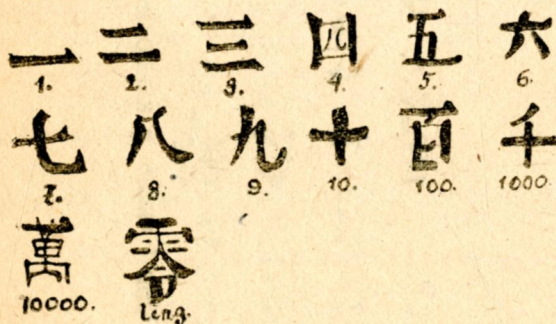 一 二 三 四 五 六
1. 2. 3. 4. 5. 6.
七 八 九 十 百 千
7. 8. 9. 10. 100. 1000.
萬 零
10000. leng.